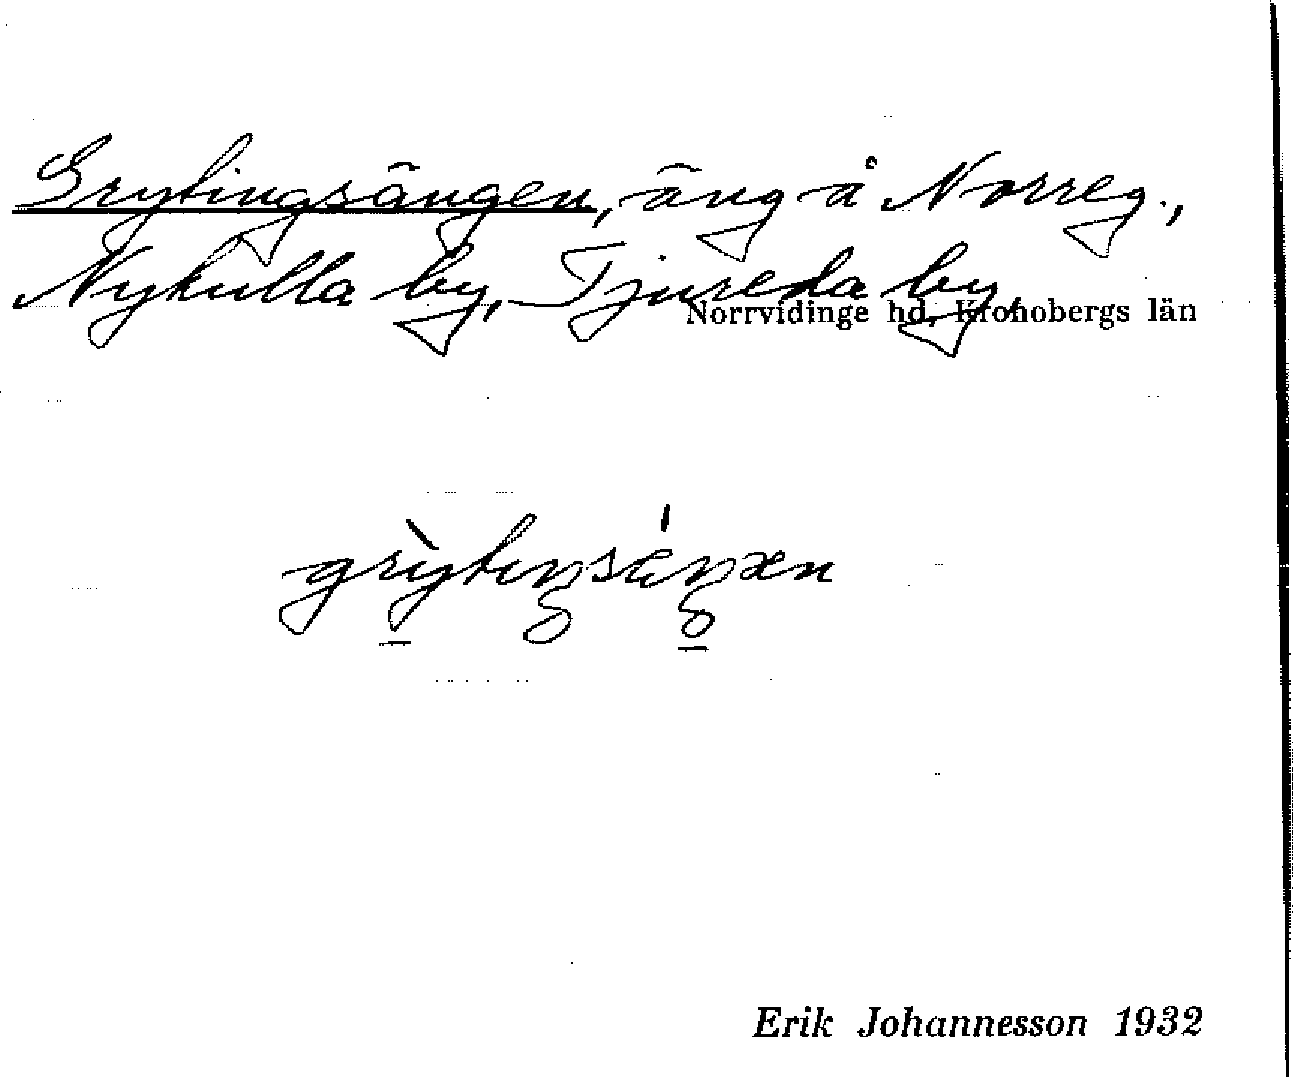 Grytingsängen, äng å Norreg.,
Nykulla by, Tjureda by,
Norrvidinge hd, Kronobergs län
grỳtiŋsáŋxn
Erik Johannesson 1932